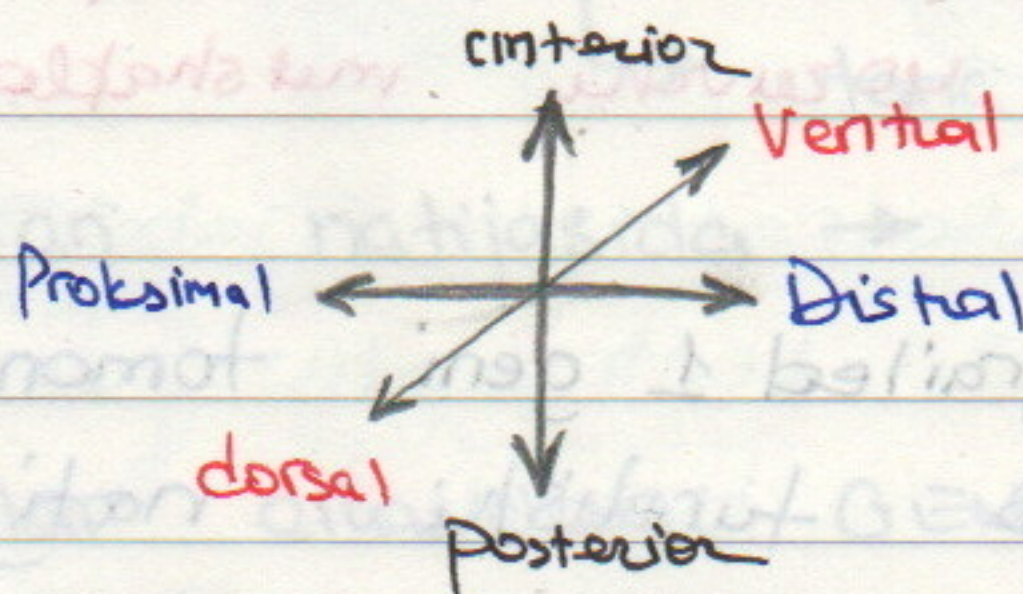 anterior
Ventral
Proksimal
Distal
dorsal
posterior